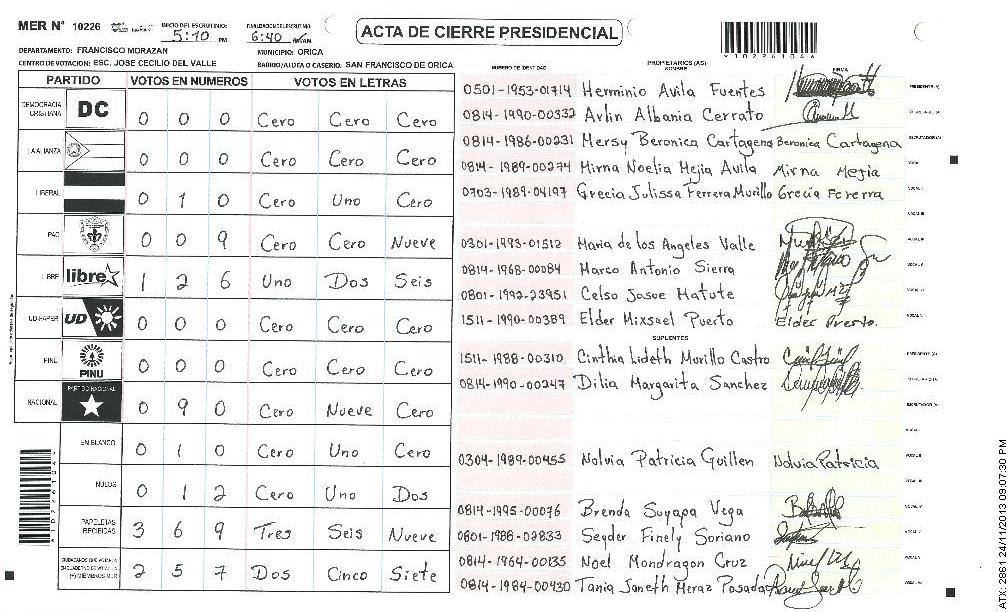 MER N° 10226 INICIO DEL ESCRUTINIO: 5:10 PM FINALIZACION DEL ESCRUTINIO: 6:40
ACTA DE CIERRE PRESIDENCIAL
DEPARTAMENTO: FRANCISCO MORAZAN MUNICIPIO: ORICA
CENTRO DE VOTACION: ESC. JOSE CECILIO DEL VALLE BARRIO/ALDEA O CASERIO: SAN FRANCISCO DE ORICA
PARTIDO VOTOS EN NUMEROS VOTOS EN LETRAS
DEMOCRACIA CRISTIANA DC 0 0 0 Cero Cero Cero
LA ALIANZA 0 0 0 Cero Cero Cero
LIBERAL 0 1 0 Cero Uno Cero
PAC 0 0 9 Cero Cero Nueve
LIBRE libre 1 2 6 Uno Dos Seis
UD-FAPER UD 0 0 0 Cero Cero Cero
PINU PINU 0 0 0 Cero Cero Cero
NACIONAL PARTIDO NACIONAL 0 9 0 Cero Nueve Cero
EN BLANCO 0 1 0 Cero Uno Cero
NULOS 0 1 2 Cero Uno Dos
PAPELETAS RECIBIDAS 3 6 9 Tres Seis Nueve
CIUDADANOS QUE VOTARON EN CUADERNO DE VOTACION (+) MIEMBROS MER 2 5 7 Dos Cinco Siete
NUMERO DE IDENTIDAD PROPIETARIOS (AS) NOMBRE FIRMA
0501-1953-01714 Herminio Avila Fuentes PRESIDENTE (A)
0814-1990-00332 Arlin Albania Cerrato
0814-1986-00231 Mersy Beronica Cartagena Beronica Cartagena ESCRUTADOR (A)
0814-1989-00274 Mirna Noelia Mejia Avila Mirna Mejia VOCAL I
0703-1989-04197 Grecia Julissa Ferrera Murillo Grecia Fererra VOCAL II
VOCAL III
0301-1993-01512 Maria de los Angeles Valle VOCAL IV
0814-1968-00084 Marco Antonio Sierra VOCAL V
0801-1992-23951 Celso Josue Matute VOCAL VI
1511-1990-00389 Elder Mixsael Puerto Elder Puerto.
SUPLENTES
1511-1988-00310 Cinthia Lideth Murillo Castro PRESIDENTE (A)
0814-1990-00247 Dilia Margarita Sanchez
ESCRUTADOR (A)
VOCAL I
0304-1989-00455 Nolvia Patricia Guillen Nolvia Patricia VOCAL II
VOCAL III
0814-1995-00076 Brenda Suyapa Vega VOCAL IV
0801-1988-02833 Seyder Finely Soriano VOCAL V
0814-1964-00135 Noel Mondragon Cruz
0814-1984-00430 Tania Janeth Meraz Posada
ATX-2961 24/11/2013 09:07:30 PM